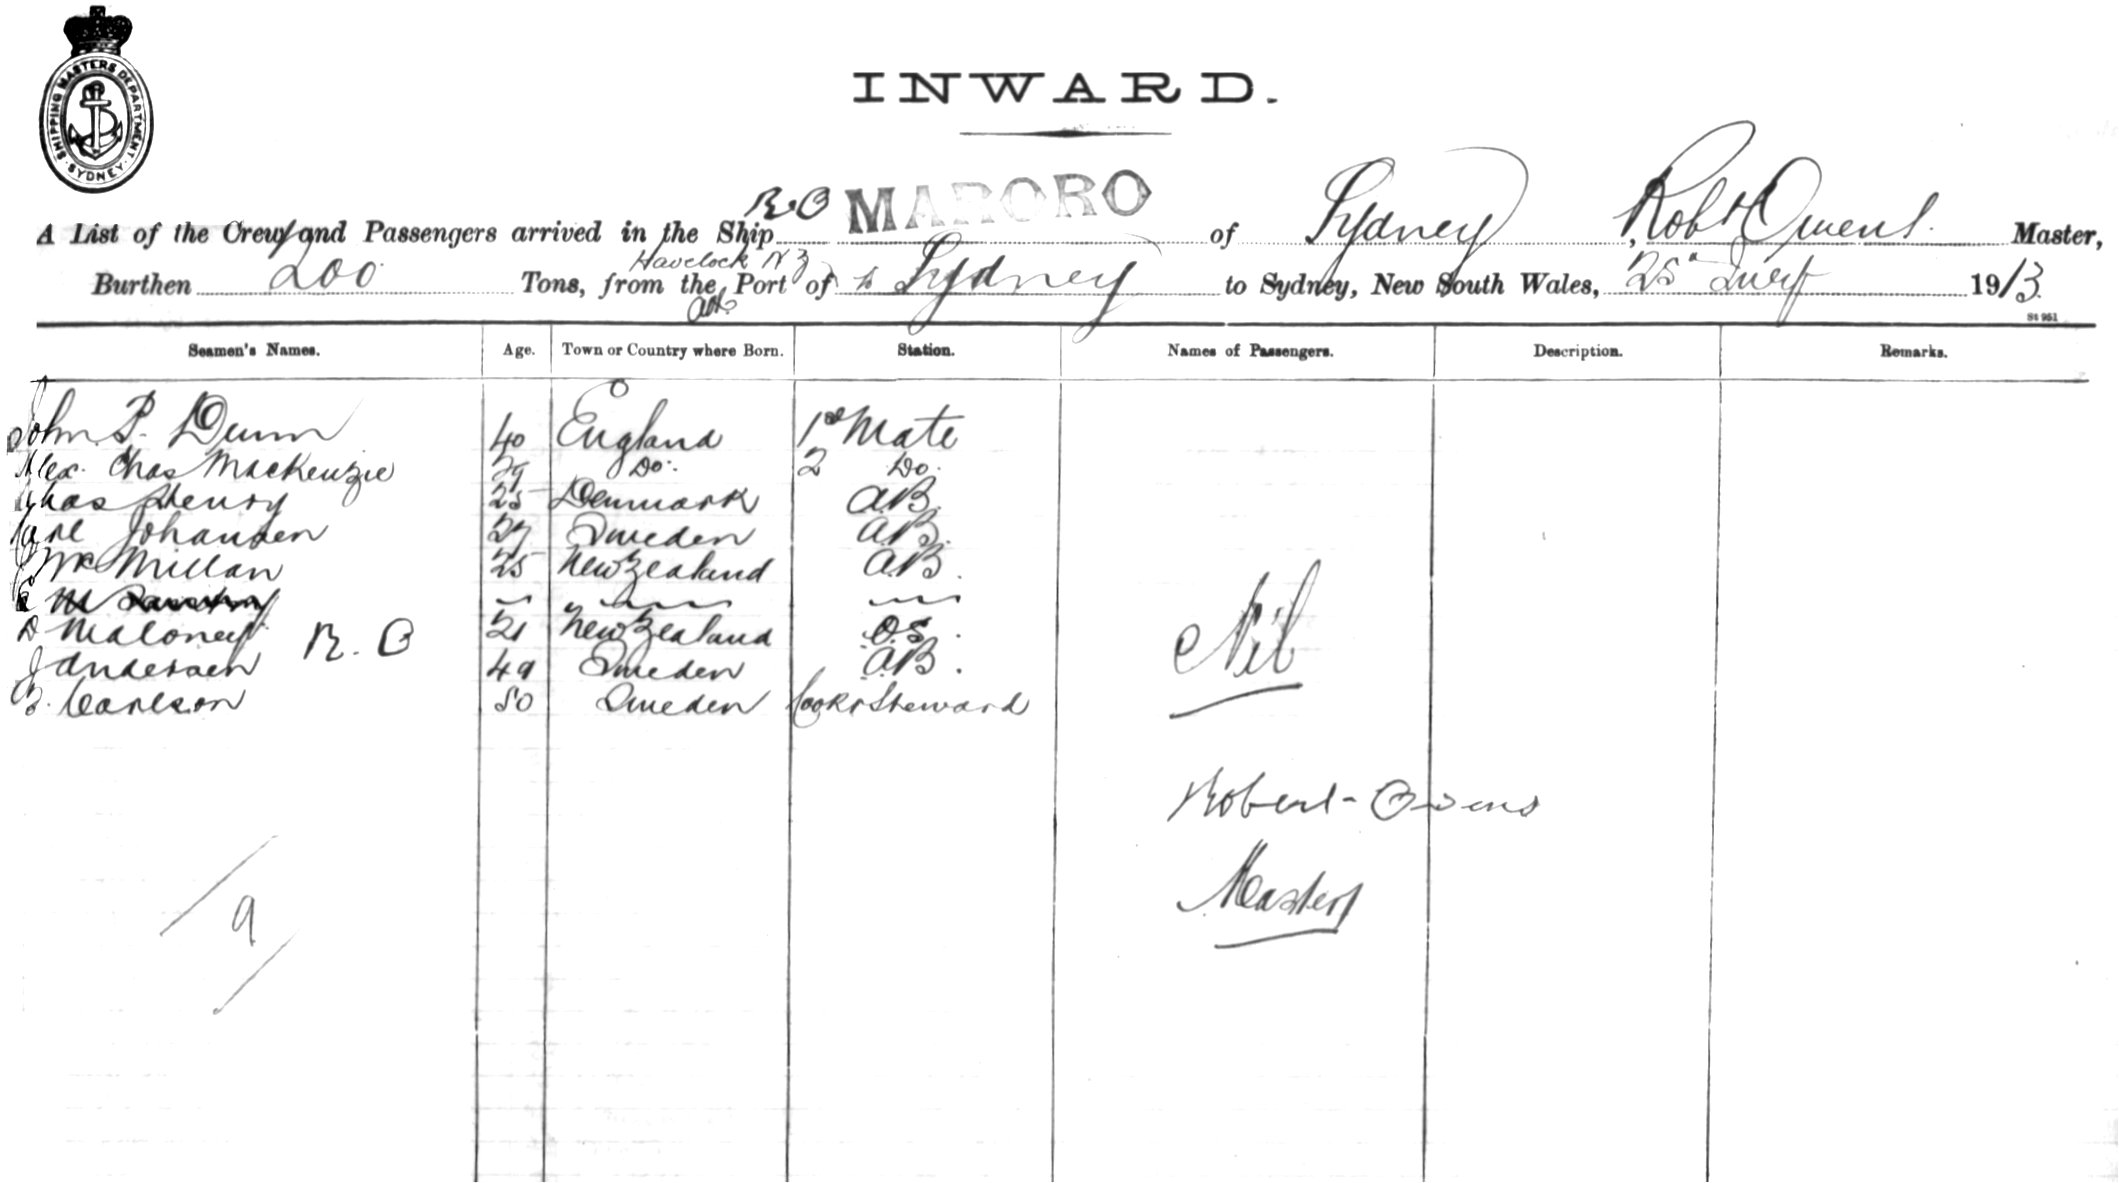 SHIPPING MASTERS DEPARTMENT · SYDNEY ·
INWARD.
R.O MARORO
A List of the Crew and Passengers arrived in the Ship of Sydney, Robt Owens Master,
Havelock N Z
Burthen 200 Tons, from the Port of to Sydney to Sydney, New South Wales, 25 July 1913.
St 951
Seamen's Names. Age. Town or Country where Born. Station. Names of Passengers. Description. Remarks.
John P. Dunn 40 England 1st Mate
Alex. Chas Mackenzie 29 Do. 2 Do.
Chas Henry 25 Denmark A.B.
Karl Johansen 27 Sweden A.B.
McMillan 25 New Zealand A.B.
D Maloney R. O 21 New Zealand O.S.
J Andersen 49 Sweden A.B.
Carlson 50 Sweden Cook & Steward
Nil
Robert Owens
Master
9